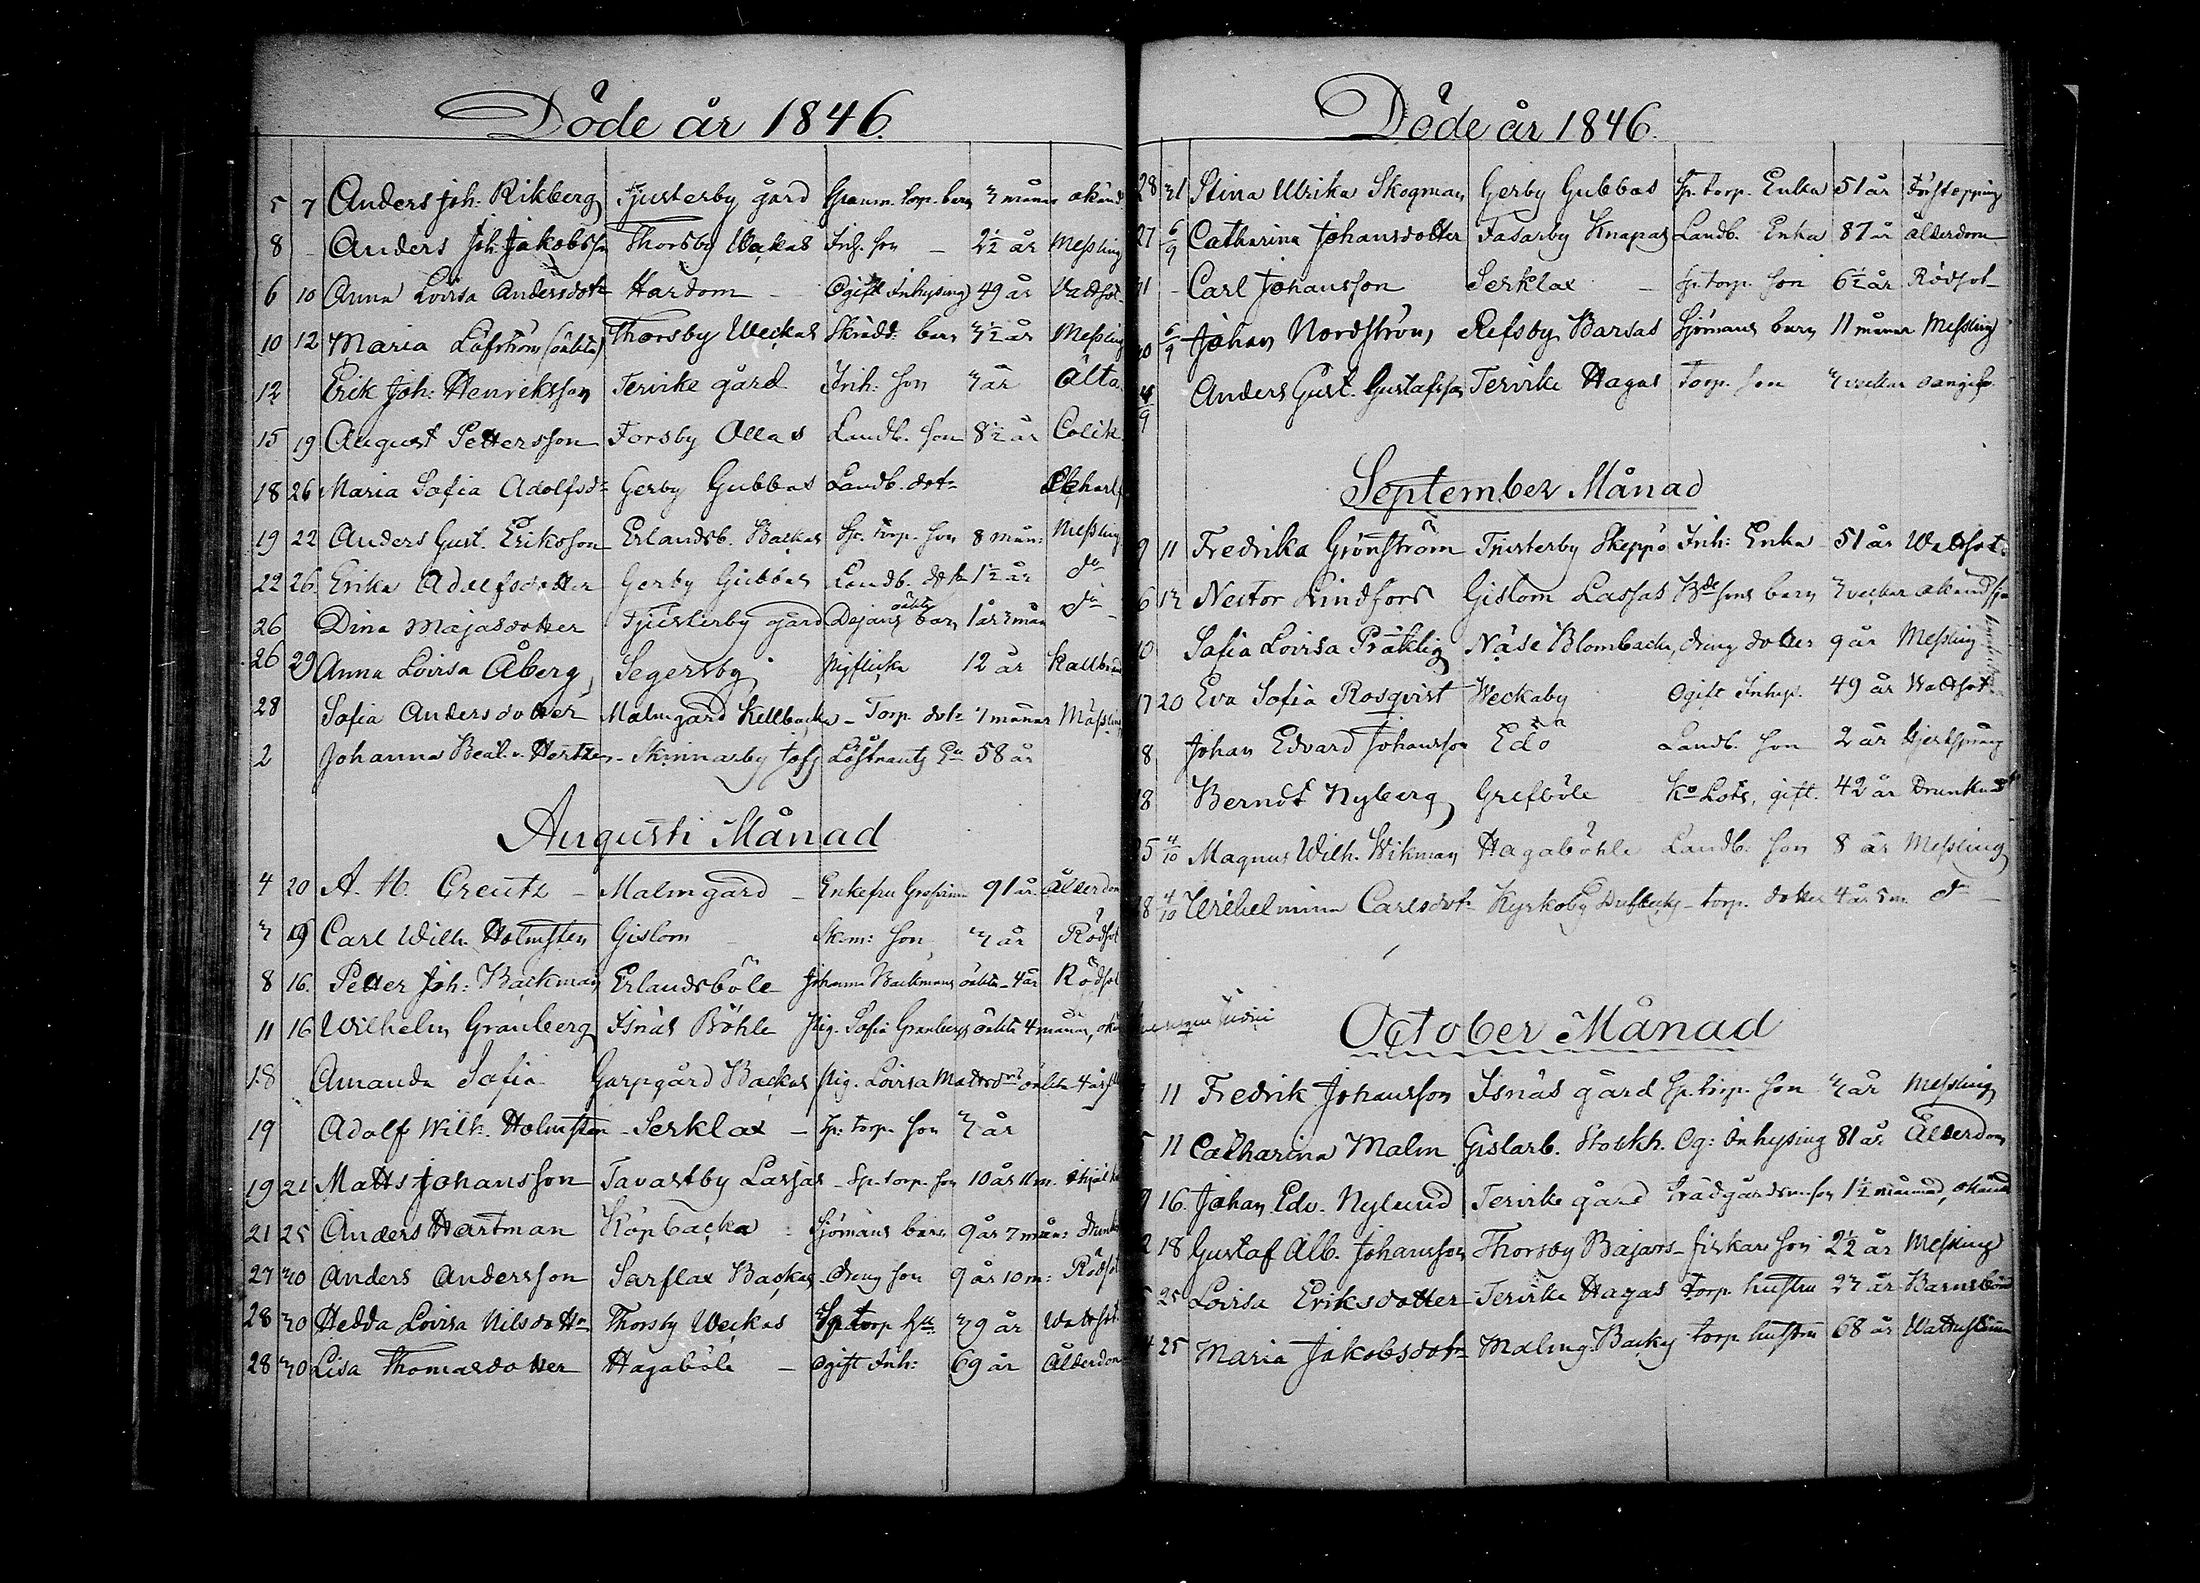 Döde år 1846.
5 7 Anders Joh. Rikberg Tjusterby gård Granm. torp. barn 3 månar okänd
8 - Anders Joh: Jakobsson Thorsby Weckas Inh. son - 2½ år Messling
6 10 Anna Lovisa Andersdotr Hardom - Ogift Inhysing 49 år Vattsot
10 12 Maria Löfström (oäkta) Thorsby Weckas Skrädd. barn 3½ år Messling
12 Erik Joh: Henriksson Tervike gård Inh: son 3 år Älta
15 19 August Pettersson Forsby Ollas Landb. son 8½ år Colik
18 26 Maria Sofia Adolfsdr Gerby Gubbas Landb. dotr
19 22 Anders Gust. Eriksson Erlandsb. Backas Sp. torp. son 8 mån: Messling
22 26. Erika Adolfsdotter Gerby Gubbas Landb. dotr 1½ år do
26 Dina Majasdotter Tjusterby gård Dejans oäkta barn 1 år 3 mån do -
26 29 Anna Lovisa Åberg, Segersby pigflicka 12 år Kallbrand
28 Sofia Andersdotter Malmgård Kellbacka - Torp. dotr 3 månar Mässling
2 Johanna Beat. v. Hertzen - Skinnarby Löjtnants En 58 år
Augusti Månad
4 20 A. M. Creutz - Malmgård - Enkefru Grefvinna 91 år Ålderdom
3 19 Carl Wilh. Holmsten Gislom - Skom: son 3 år Rödsot
8 16. Petter Joh: Backman Erlandsböle Johanna Backmans oäkta - 4 år Rödsot
11 16 Wilhelm Granberg Isnäs Böhle Pig. Sofia Granbergs oäkta 4 månar, okä
18 Amanda Sofia Garpgård Backas Pig. Lovisa Mattsdrs oäkta 4 år
19 Adolf Wilh. Holmsten - Serklax - Sp: torp. son 3 år
19 21 Matts Johansson Tavastby Lassas - Sp. torp. son 10 år 11 m. ihjäl
21 25 Anders Hartman Köpbacka - Sjömans barn 9 år 7 mån: Drunk
27 30 Anders Andersson Sarflax Backas - dreng son 9 år 10 m: Rödsot
28 30 Hedda Lovisa Nilsdottr Thorsby Weckas Sp torp hu 39 år Wattsot
28 30 Lisa Thomasdotter Hagaböle - Ogift Inh: 69 år Ålderdom
Döde år 1846.
28 31 Stina Ulrika Skogman Gerby Gubbas Sp. torp. Enka 51 år Förstoppning
27 6/9 Catharina Johansdotter Fasarby Knapas Landb. Enka 87 år ålderdom
31 - Carl Johansson Serklax - Sp. torp. son 6½ år Rödsot
30 6/9 Johan Nordström, Refsby Barsas Sjömans barn 11 månar Messling
4/9 Anders Gust. Gustafsson Tervike Hagas Torp. son 3 veckor oangif
September Månad
9 11 Fredrika Grönström Tjusterby Skeppö Inh: Enka 51 år Wattsot.
6 13 Nestor Lindfors Gislom Lassas Bde sons barn 3 veckor okänd sju
10 Sofia Lovisa Präktig Näse Blombacka, dreng dotter 9 år Messling
17 20 Eva Sofia Rosqvist Weckaby Ogift Inhys. 49 år Wattsot
8 Johan Edvard Johansson Edö Landb. son 2 år Hjertsprång
18 Berndt Nyberg Grefböle Ko Lots, gift. 42 år Drunknad
25 4/10 Magnus Wilh. Wikman Hagaböhle Landb: son 8 år Messling
28 4/10 Wilhelmina Carlsdotr Kyrkoby - torp. dotter 4 år 5 m. do -
October Månad
11 Fredrik Johansson Isnäs gård Sp. torp. son 3 år Messling
5 11 Catharina Malm Gislarb. Stockh. Og: Inhysing 81 år Ålderdom
9 16. Johan Edv. Nylund Tervike gård trädgårdsm. son 1½ månad, okänd
2 18 Gustaf Alb. Johansson Thorsby Bajars - fiskar son 2½ år Messling
5 25 Lovisa Eriksdotter - Tervike Hagas torp. hustru 23 år Barnsbörd
4 25 Maria Jakobsdotr Malmg. Backy torp hustru 68 år